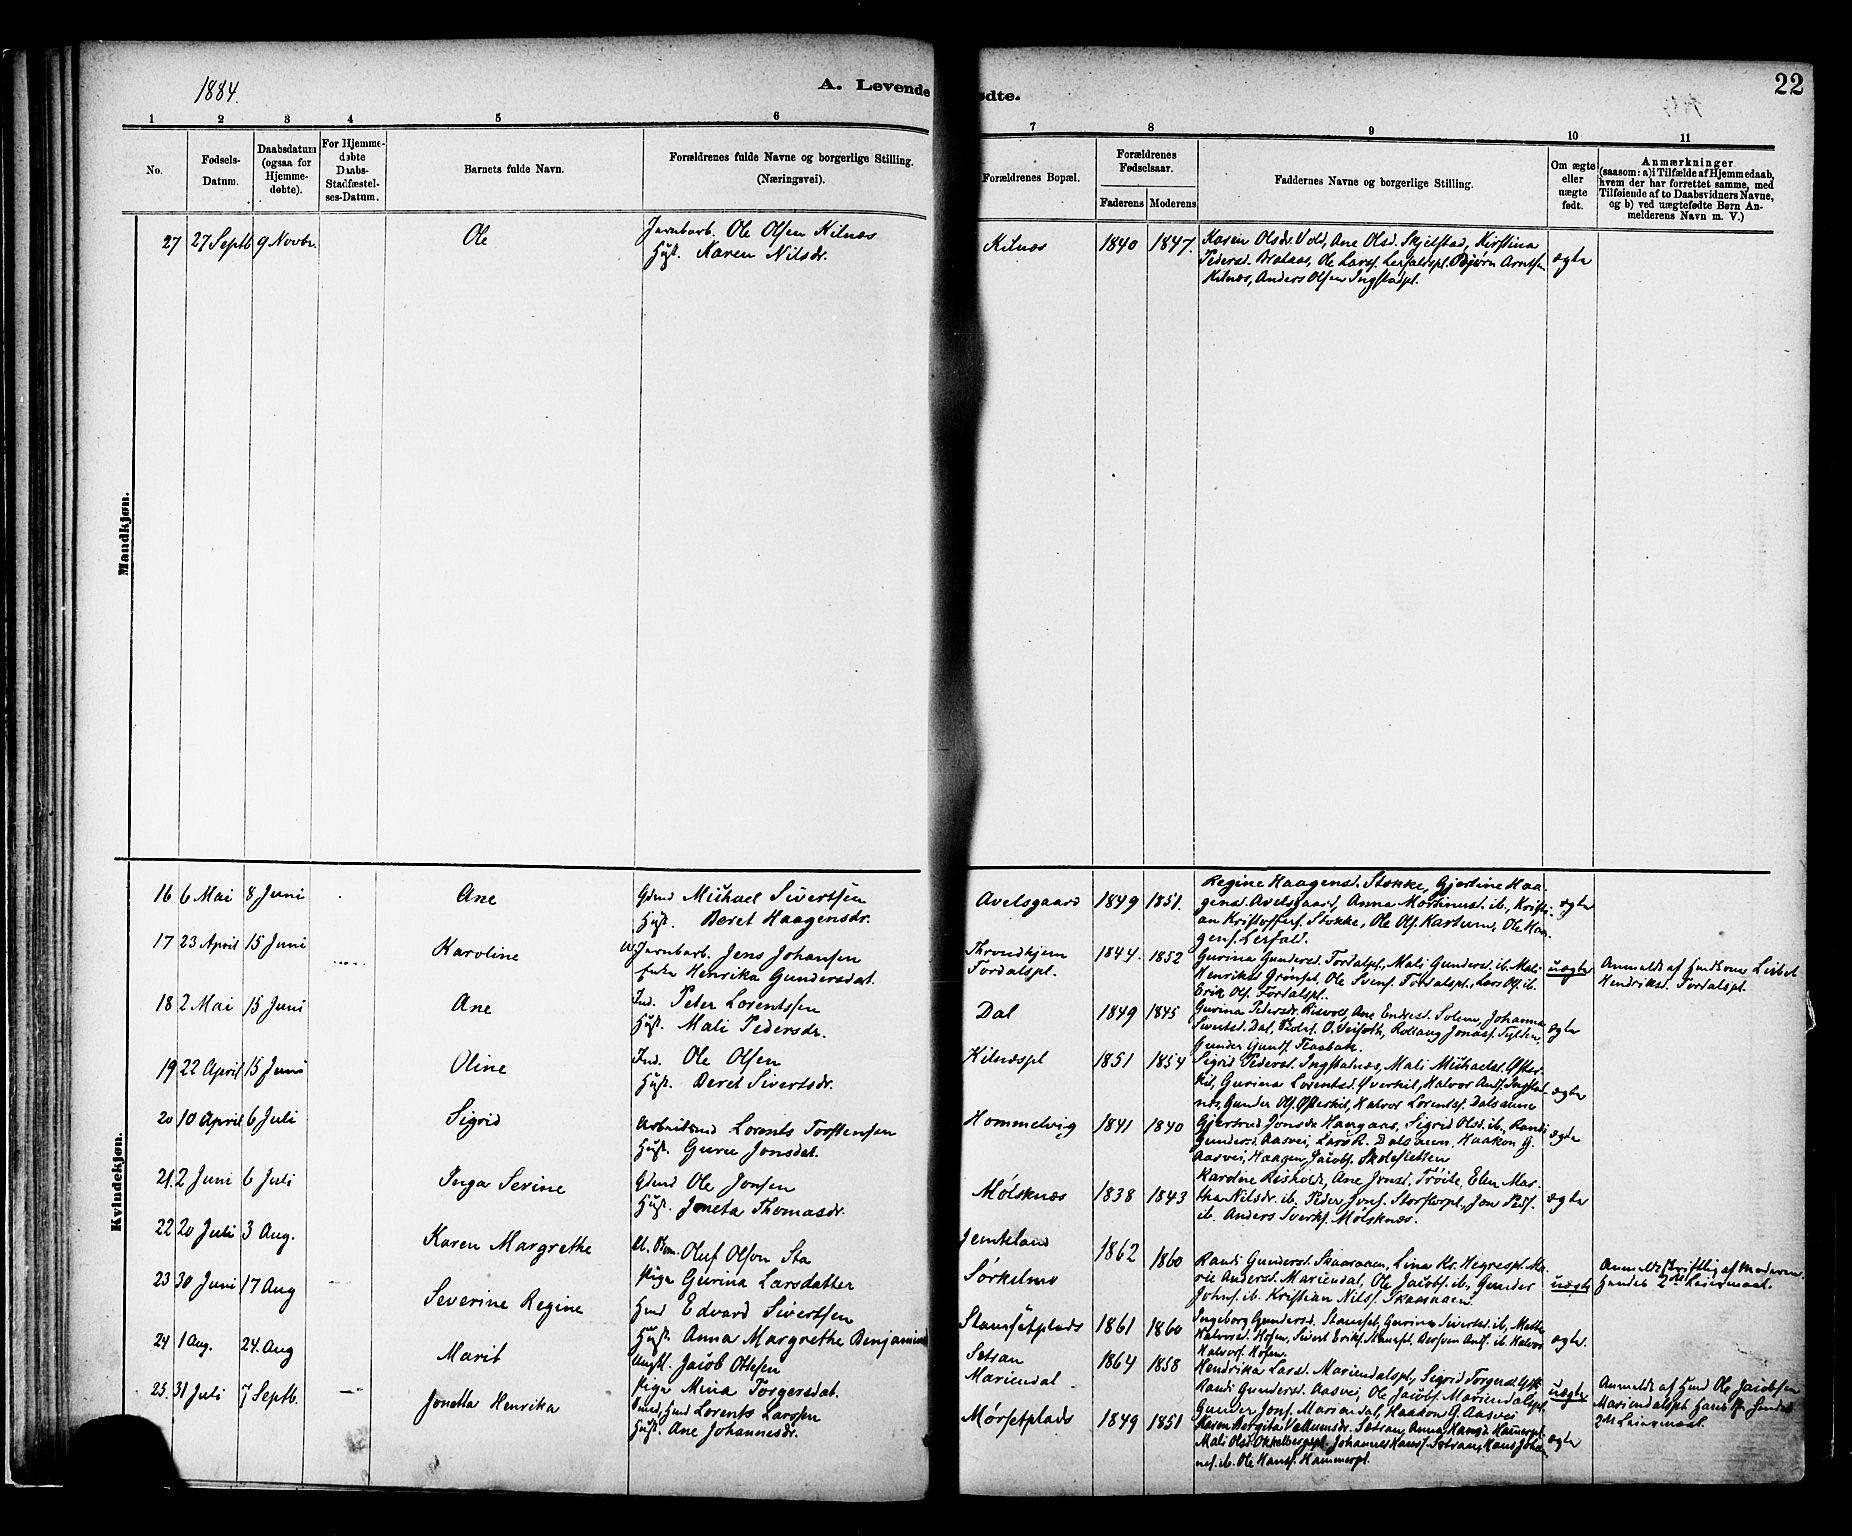 1884.
A. Levende
ødte.
22
1
2
3
4
5
6
7
8
9
10
11
No.
Fødsels-
Datum.
Daabsdatum
(ogsaa for
Hjemme-
døbte).
For Hjemme-
døbte
Daabs-
Stadfæstel-
ses-Datum.
Barnets fulde Navn.
Forældrenes fulde Navne og borgerlige Stilling.
(Næringsvei).
Forældrenes Bopæl.
Forældrenes
Fødselsaar.
Faderens
Moderens
Faddernes Navne og borgerlige Stilling.
Om ægte
eller
uægte
født.
Anmærkninger
(saasom: a) i Tilfælde af Hjemmedaab,
hvem der har forrettet samme, med
Tilføiende af to Daabsvidners Navne,
og b) ved uægtefødte Børn An-
melderens Navn m. V.)
Mandkjøn.
27
27 Septb
9 Novbr.
Ole
Jernbarb. Ole Olsen Kilnæs
Hust. Karen Nilsdr.
Kilnæs
1840
1847.
Karen Olsdr. Vold, Ane Olsd. Skjelstad, Kirstina
Pedersd. Braaas, Ole Larss. Lerfaldspl. Bjørn Arntsen
Kilnæs, Anders Olsen Ingstadpl.
ægte
Kvindekjøn.
16
6 Mai
8 Juni
Ane
Gdmd Michael Sivertsen
Hust. Beret Haagensdr.
Avelsgaard
1849
1851.
Regine Haagensd. Stokke, Gjertine Haa-
gensd. Avelsgaard, Anna Mortinusd. ib., Kristi-
an Kristoffers. Stokke, Ole Ols. Kartum, Ole Haa-
gens. Lerfald.
ægte
17
23 April
15 Juni
Karoline
Jernbarb. Jens Johansen
Enke Henrika Gundersdat.
Throndhjem
Fordalspl.
1844.
1852
Gurina Gundersd. Fordalspl., Mali Gundersd. ib. Mali
Henriksd. Grønset, Ole Svens. Fordalspl., Lars Ols. ib.
Erik Ols. Fordalspl.
uægte
Anmeldt af Jordemor Lisbet
Henriksd. Fordalspl.
18
2 Mai
15 Juni
Ane
Ind. Peter Lorentssen
Hust. Mali Pedersdr.
Dal
1849
1845
Gurina Pedersdr. Risvold, Ane Endresd. Solem, Johanna
Sivertsd. Dal, O. Rollaug Jonass. Fylten,
Gunder Gunts. Flaabak.
ægte
19
22 April
15 Juni
Oline
Ind. Ole Olsen
Hust. Beret Sivertsdr.
Kilnæspl
1851
1854
Sigrid Pedersd. Ingstadnæs, Mali Michaelsd. Øfster-
kil, Gurina Lorentsd. Øverkil, Halvor Ands. Ingstad-
næs, Gunder Ols. Øfsterkil, Halvor Lorents. Dalsaune
ægte
20
10 April
6 Juli
Sigrid
Arbeidsmd Lorents Torstensen
Hust. Guru Jonsdat.
Hommelvig
1841
1840
Gjertrud Jonsdr. Haugaas, Sigrid Olsd. ib., Randi
Gundersd. Aasvei, Lars R. Dalsaun, Haakon G.
Aasvei, Haagen Jacobs. Skoleflatten
ægte
21.
2 Juni
6 Juli
Inga Serine
Gdmd Ole Jonsen
Hust. Joneta Thomasdr.
Mølsknæs
1838
1843
Karoline Risholdt, Ane Jonsd. Trøite, Elen Mar-
tha Nilsdr. ib. Peder Jons. Storflorpl., Jon Peds.
ib. Anders Sverks. Mølsknæs.
ægte
22
20 Juli
3 Aug.
Karen Margrethe
Oluf Olson Sta
Pige Gurina Larsdatter
Jemteland
Sørkelmo
1862
1860
Randi Gundersd. Skaaraaen, Lina Kr. Hegrespl. Ma-
rie Andersd. Mariendal, Ole Jacobs. ib., Gunder
Johns. ib. Kristian Nils. Skaaraaen
uægte
Anmeldt skriftlig af Moderen.
Hendes 2det Leiermaal.
23
30 Juni
17 Aug
Severine Regine
Hmd Edvard Sivertsen
Hust. Anna Margrethe Benjamind
Stamsetplads
1861
1860
Ingeborg Gundersd. Stamset, Gurina Sivertsd. ib., Mette
Halvorsd. Hofen, Sivert Eriks. Stamset, Bersven Ants. ib. Halvor
Halvors. Hofen.
ægte.
24
1 Aug.
24. Aug
Marit
Ungkl. Jacob Ottesen
Pige Mina Torgersdat.
Setran
Mariendal
1864
1858
Hendrika Larsd. Mariendalspl, Sigrid Torgersd. Gyk
Randi Gundersd. Aasvei, Ole Jacobs. Mariendalspl,
Gunder Jons. Mariendal, Haakon G. Aasvei
uægte
Anmeldt af Hmd Ole Jacobsen
Mariendalspl
2det Leiermaal.
25.
31 Juli
7 Septb.
Jonetta Henrika
Smed, Hmd Lorents Larssen
Hust. Ane Johannesdr.
Mørsetplads
1849
1851
Karen Bergitta Setran, Anna Hansd. Hammerpl.
Mali Olsd. Okkelbergspl. Johannes Hans. Setran, Hans Johan-
nes. ib. Ole Hans. Hammerpl.
ægte